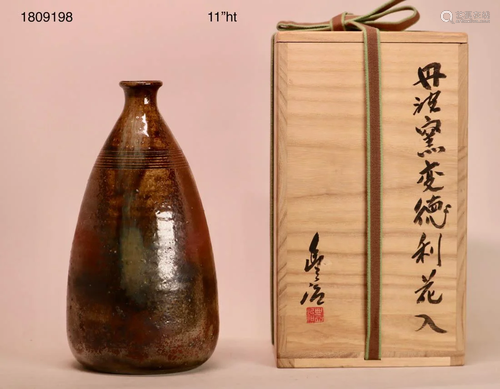 1809198
11”ht
丹波窯変徳利花入
豊治